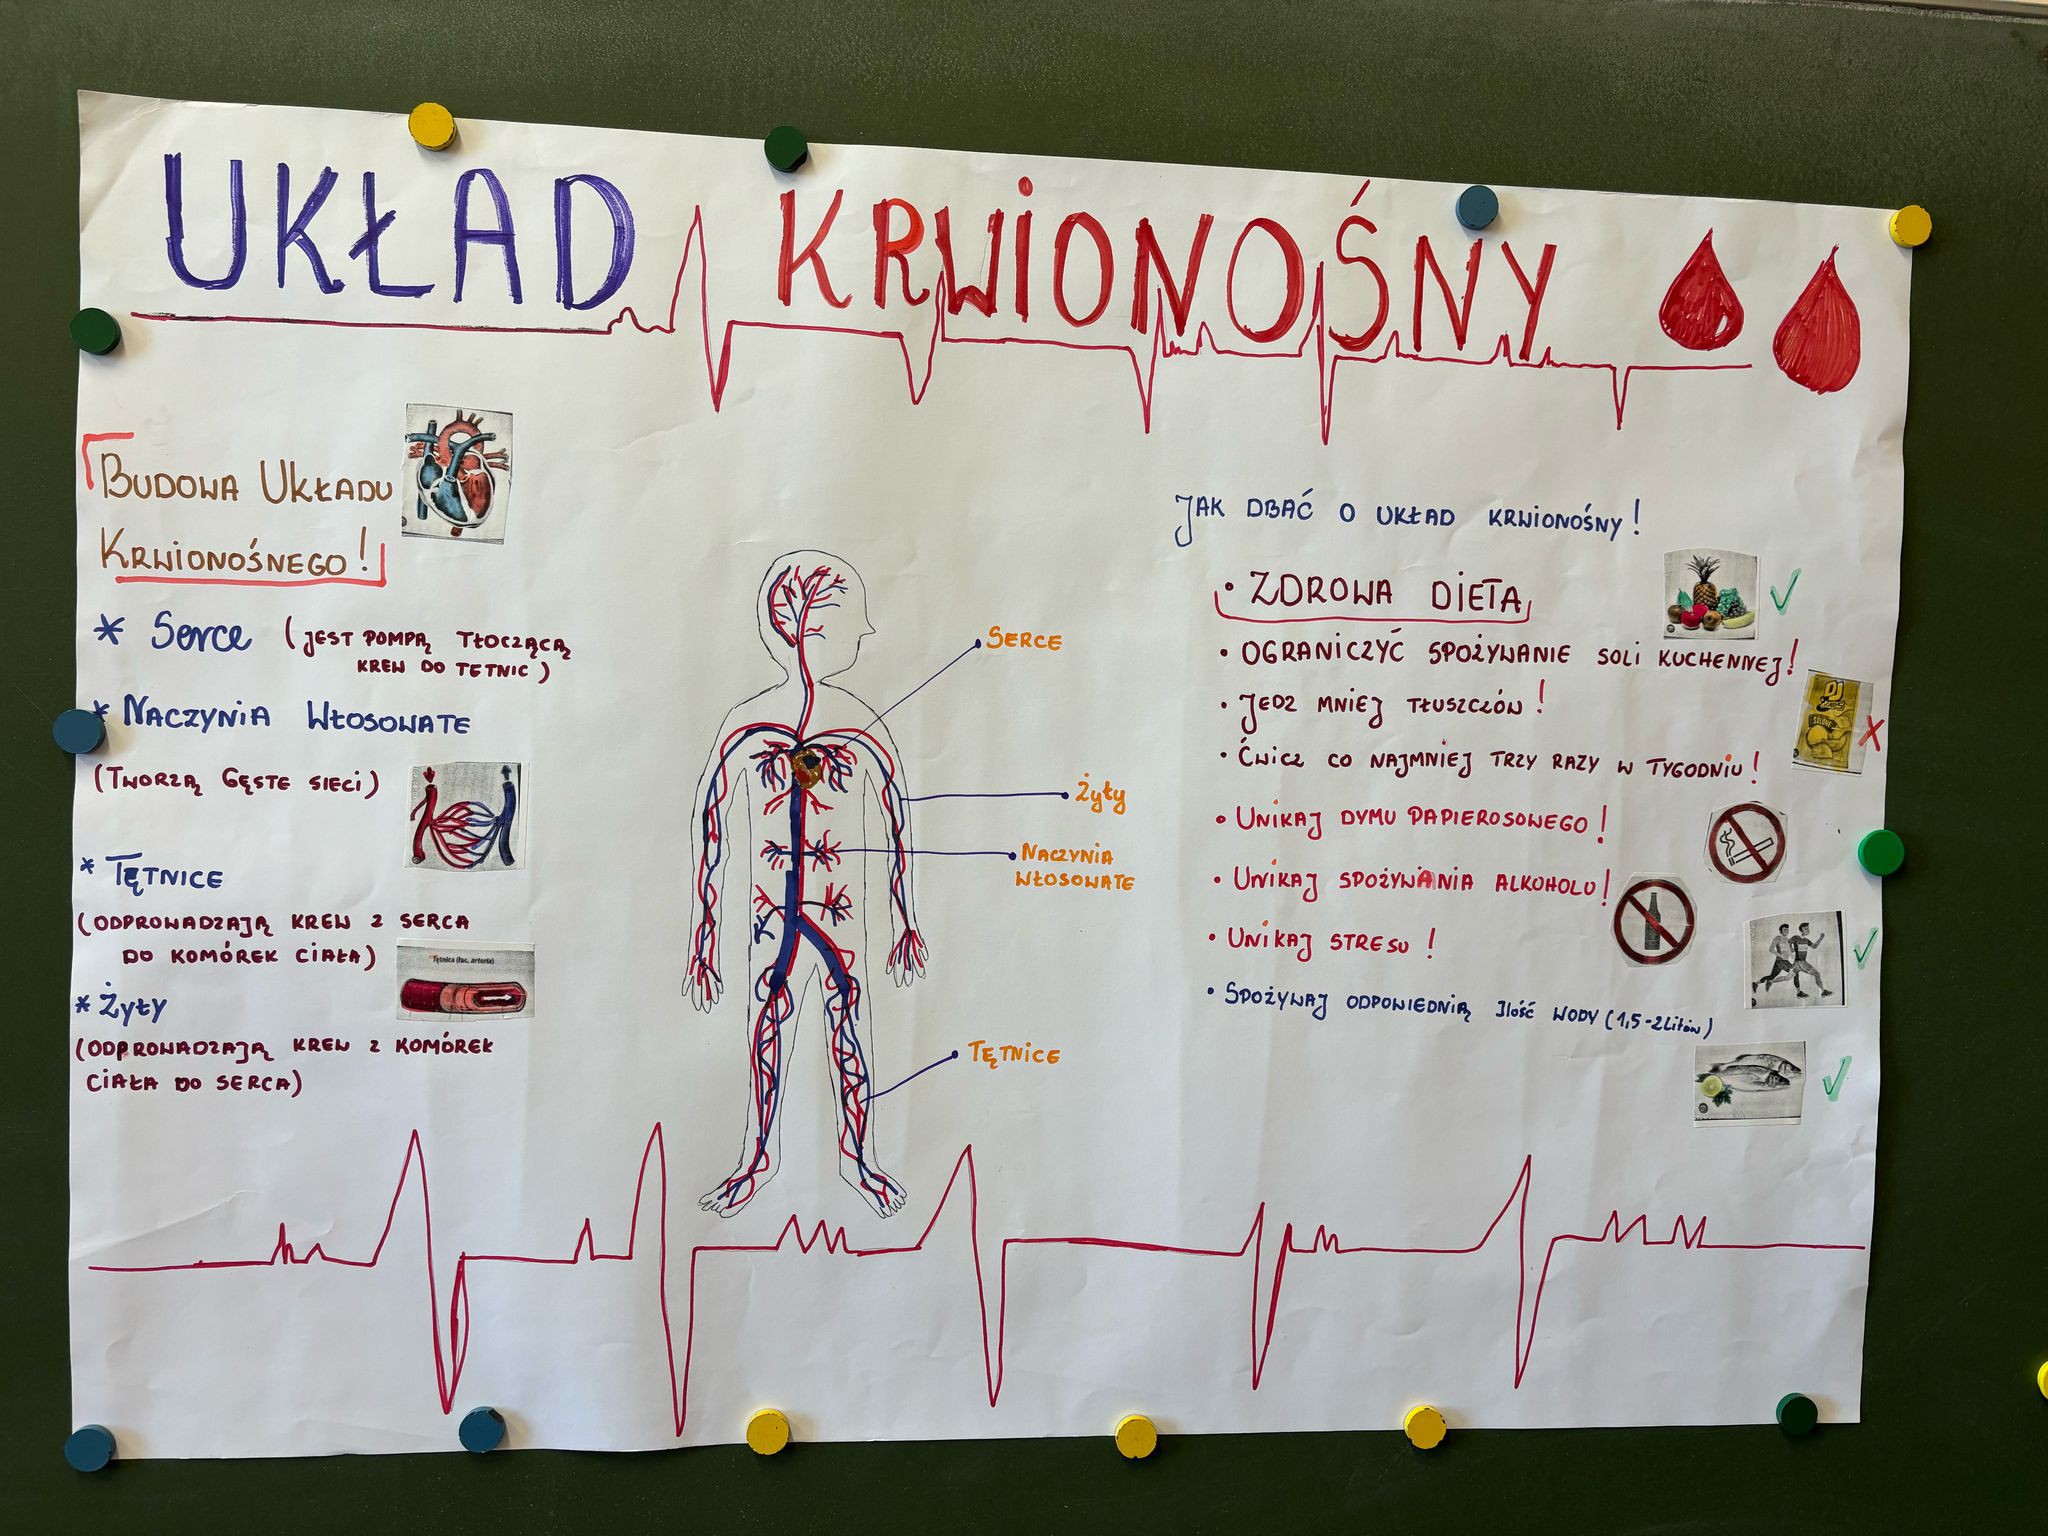 UKŁAD KRWIONOŚNY
BUDOWA UKŁADU
KRWIONOŚNEGO!
* Serce (JEST POMPĄ TŁOCZĄCĄ
KREW DO TĘTNIC)
* NACZYNIA WŁOSOWATE
(TWORZĄ GĘSTE SIECI)
* TĘTNICE
(ODPROWADZAJĄ KREW Z SERCA
DO KOMÓREK CIAŁA)
Tętnica (łac. arteria)
* Żyły
(ODPROWADZAJĄ KREW Z KOMÓREK
CIAŁA DO SERCA)
SERCE
Żyły
NACZYNIA
WŁOSOWATE
TĘTNICE
JAK DBAĆ O UKŁAD KRWIONOŚNY!
• ZDROWA DIETA
• OGRANICZYĆ SPOŻYWANIE SOLI KUCHENNEJ!
• JEDZ MNIEJ TŁUSZCZÓW!
• ĆWICZ CO NAJMNIEJ TRZY RAZY W TYGODNIU!
• UNIKAJ DYMU PAPIEROSOWEGO!
• UNIKAJ SPOŻYWANIA ALKOHOLU!
• UNIKAJ STRESU!
• SPOŻYWAJ ODPOWIEDNIĄ ILOŚĆ WODY (1,5-2 Litrów)
SOLONE